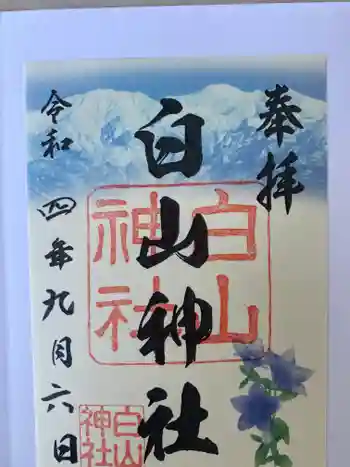 奉拝
白山神社
白山神社
令和四年九月六日
白山神社